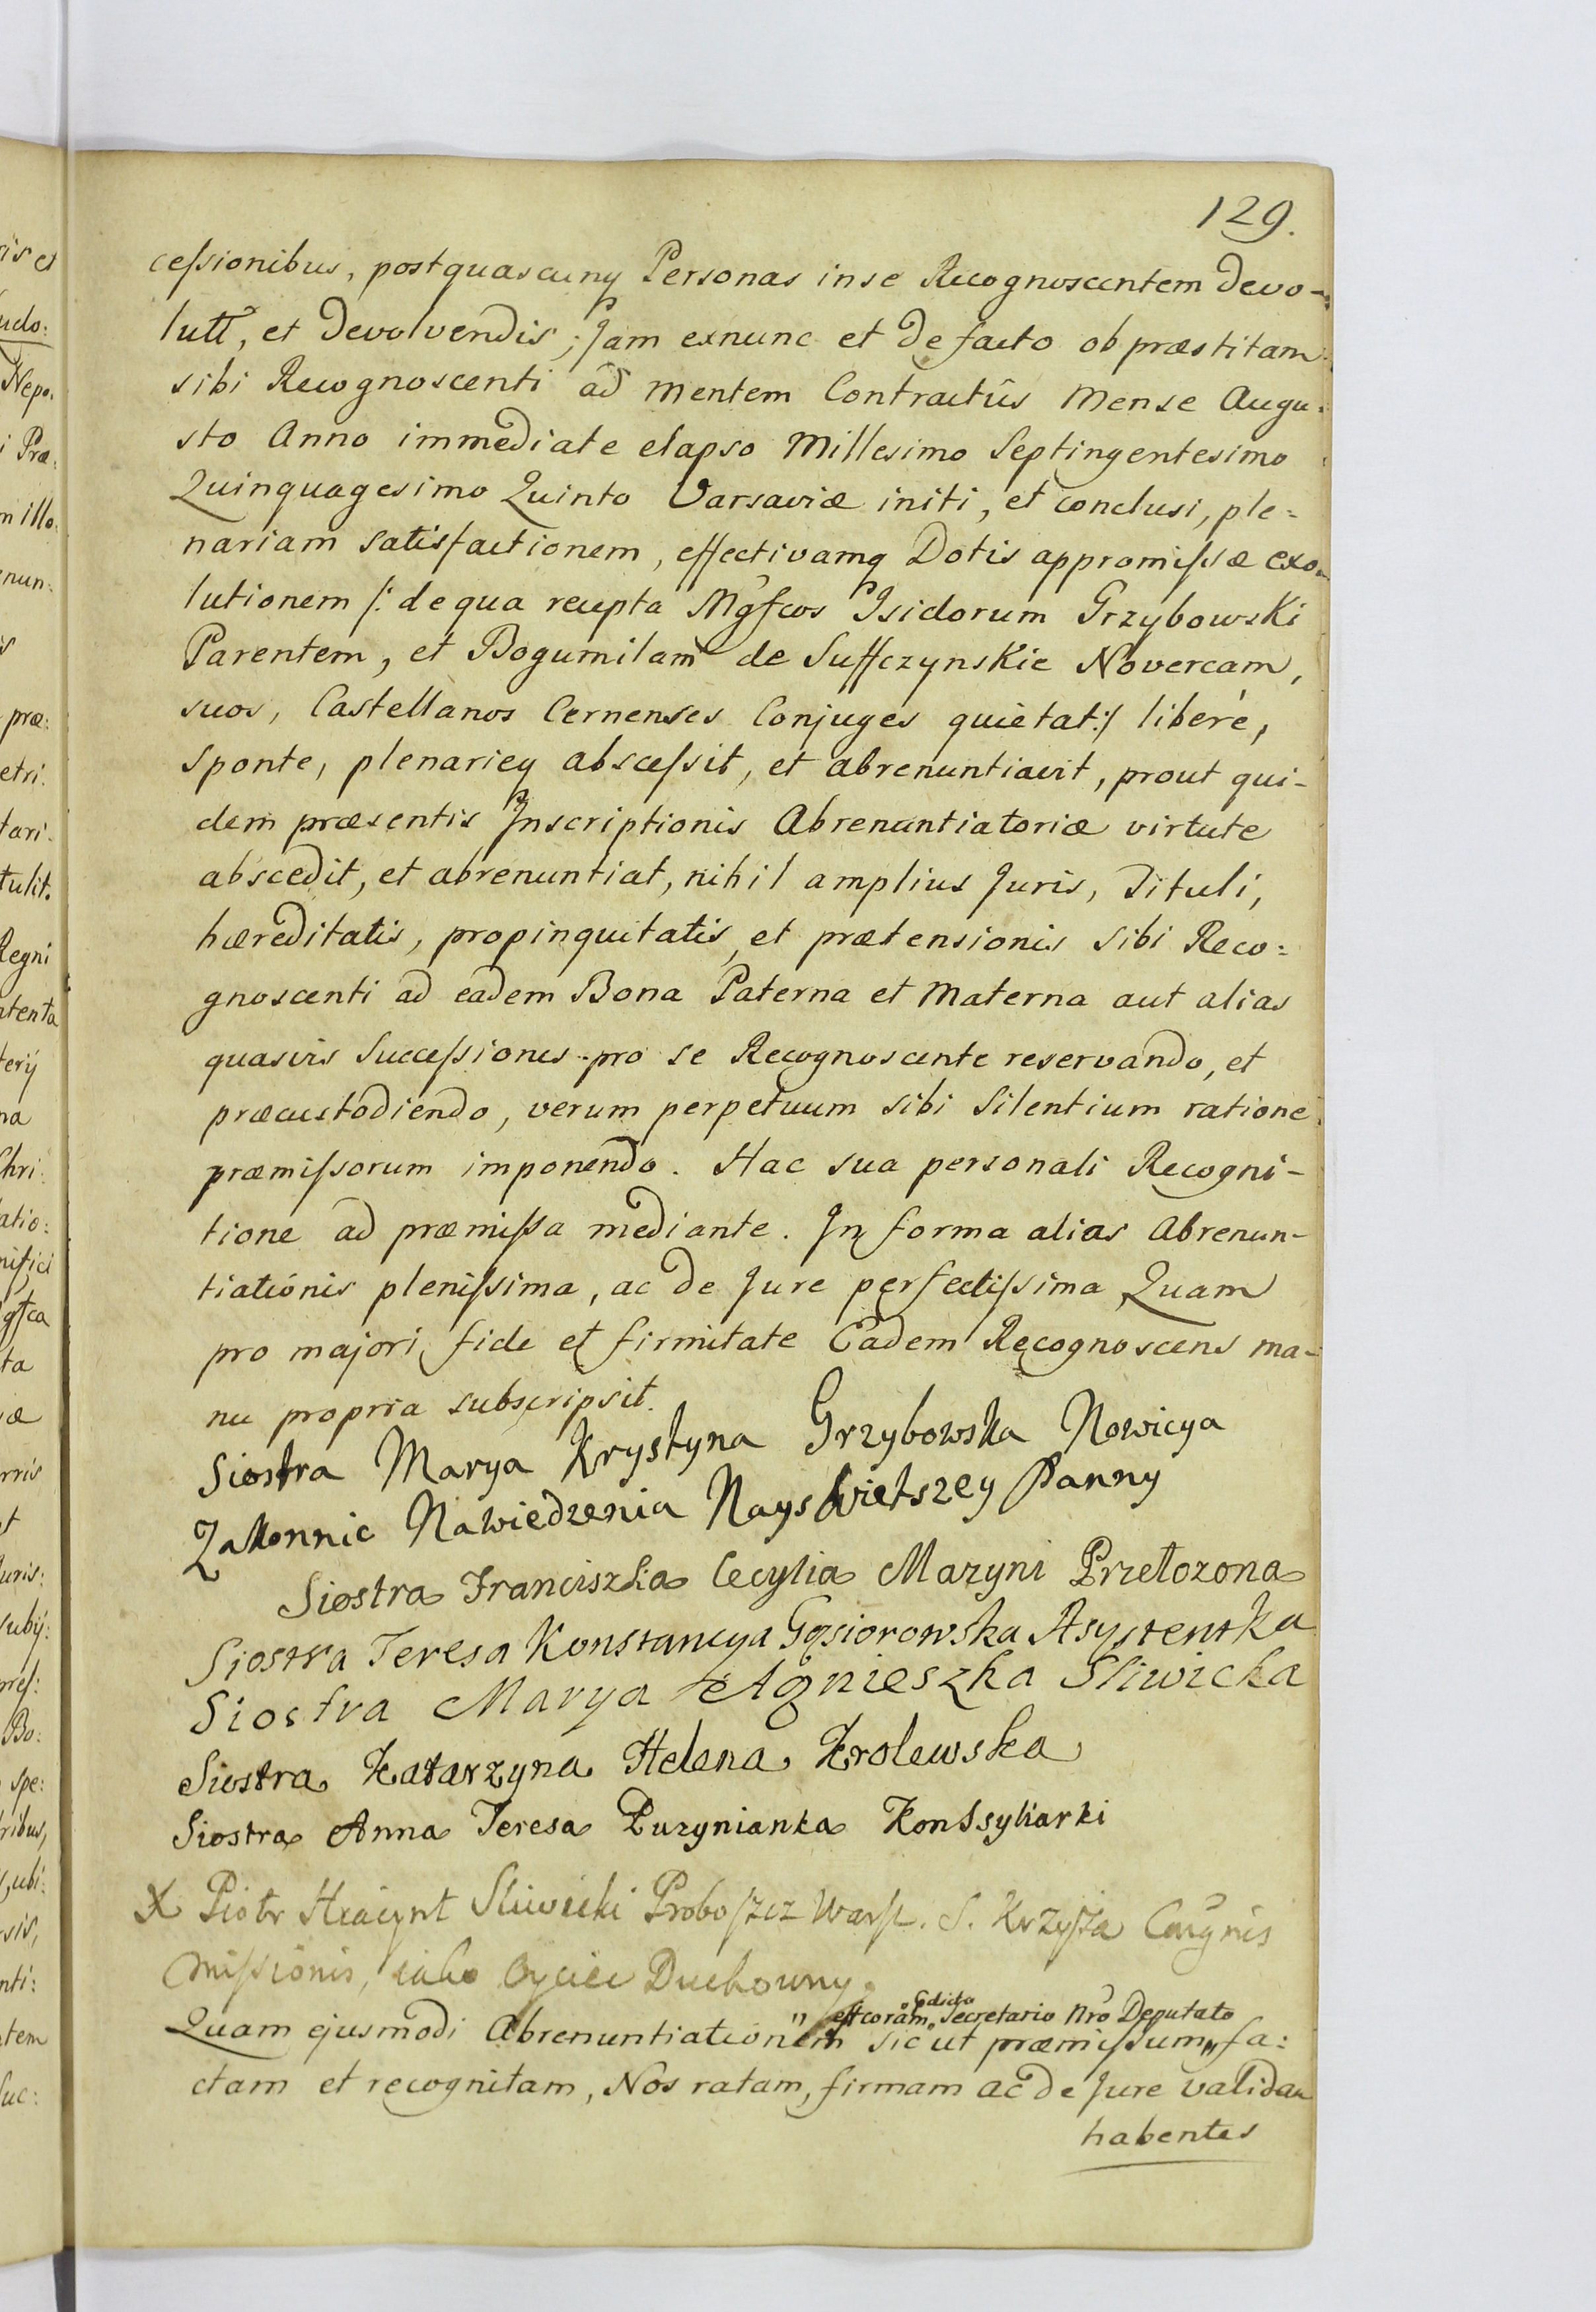 129.
cessionibus, postquascunq Personas in se Recognoscentem devo-
lutt, et devolvendis; Jam exnunc et de facto ob præstitam
sibi Recognoscenti ad mentem Contractûs Mense Augu:
sto Anno immediate elapso Millesimo Septingentesimo
Quinquagesimo Quinto Varsaviæ initi, et conclusi, ple=
nariam satisfactionem, effectivamq Dotis appromissæ exo-
lutionem /: de qua recepta Mgfcos Isidorum Grzybowski
Parentem, et Bogumilam de Suffczynskie Novercam,
suos, Castellanos Cernenses Conjuges quietat :/ liberè,
sponte, plenarieq abscessit, et abrenuntiavit, prout qui-
dem præsentis Inscriptionis Abrenuntiatoriæ virtute
abscedit, et abrenuntiat, nihil amplius Juris, Tituli,
hæreditatis, propinquitatis, et prætensionis sibi Reco=
gnoscenti ad eadem Bona Paterna et Materna aut alias
quasvis Successiones pro se Recognoscente reservando, et
præcustodiendo, verum perpetuum sibi Silentium ratione
præmissorum imponendo. Hac sua personali Recogni-
tione ad præmissa mediante. In forma alias Abrenun-
tiationis plenissima, ac de Jure perfectissima Quam
pro majori fide et firmitate Eadem Recognoscens ma-
nu propria subscripsit.
Siostra Marya Krystyna Grzybowska Nowicya
Zakonnic Nawiedzenia Nayswietszey Panny
Siostra Franciszka Cecylia Mazyni Przełozona
Siostra Teresa Konstancya Gąsiorowska Asystentka
Siostra Marya Agnieszka Sliwicka
Siostra Katarzyna Helena Krolewska
Siostra Anna Teresa Puzynianka Konssyliarki
X Piotr Hiacynt Sliwicki Proboszcz Warsz. S. Krzyża Congnis
Missionis, iako Oyciec Duchowny.
„Edicto
est coram„ Secretario Nro Deputato
Quam ejusmodi Abrenuntiationem sicut præmissum„ fa:
ctam et recognitam, Nos ratam, firmam ac de Jure validam
habentes